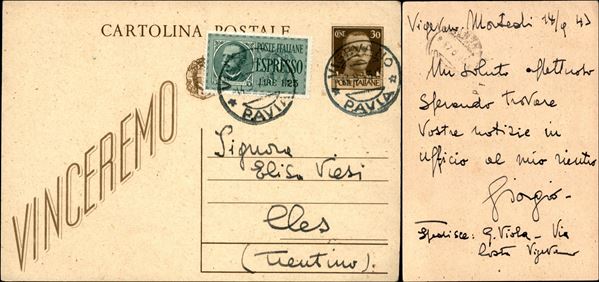 CARTOLINA POSTALE
POSTE ITALIANE
ESPRESSO
LIRE 1,25
CENT 30
POSTE ITALIANE
VIGEVANO
* PAVIA *
VIGEVANO
* PAVIA *
VINCEREMO
Signora
Elisa Viesi
Cles
(Trentino).
Vigevano, Martedì 14/9 43
Un saluto affettuoso
Sperando trovare
Vostre notizie in
Ufficio al mio rientro
Giorgio-
Spedisce: G. Viola - Via
Costa Vigevano